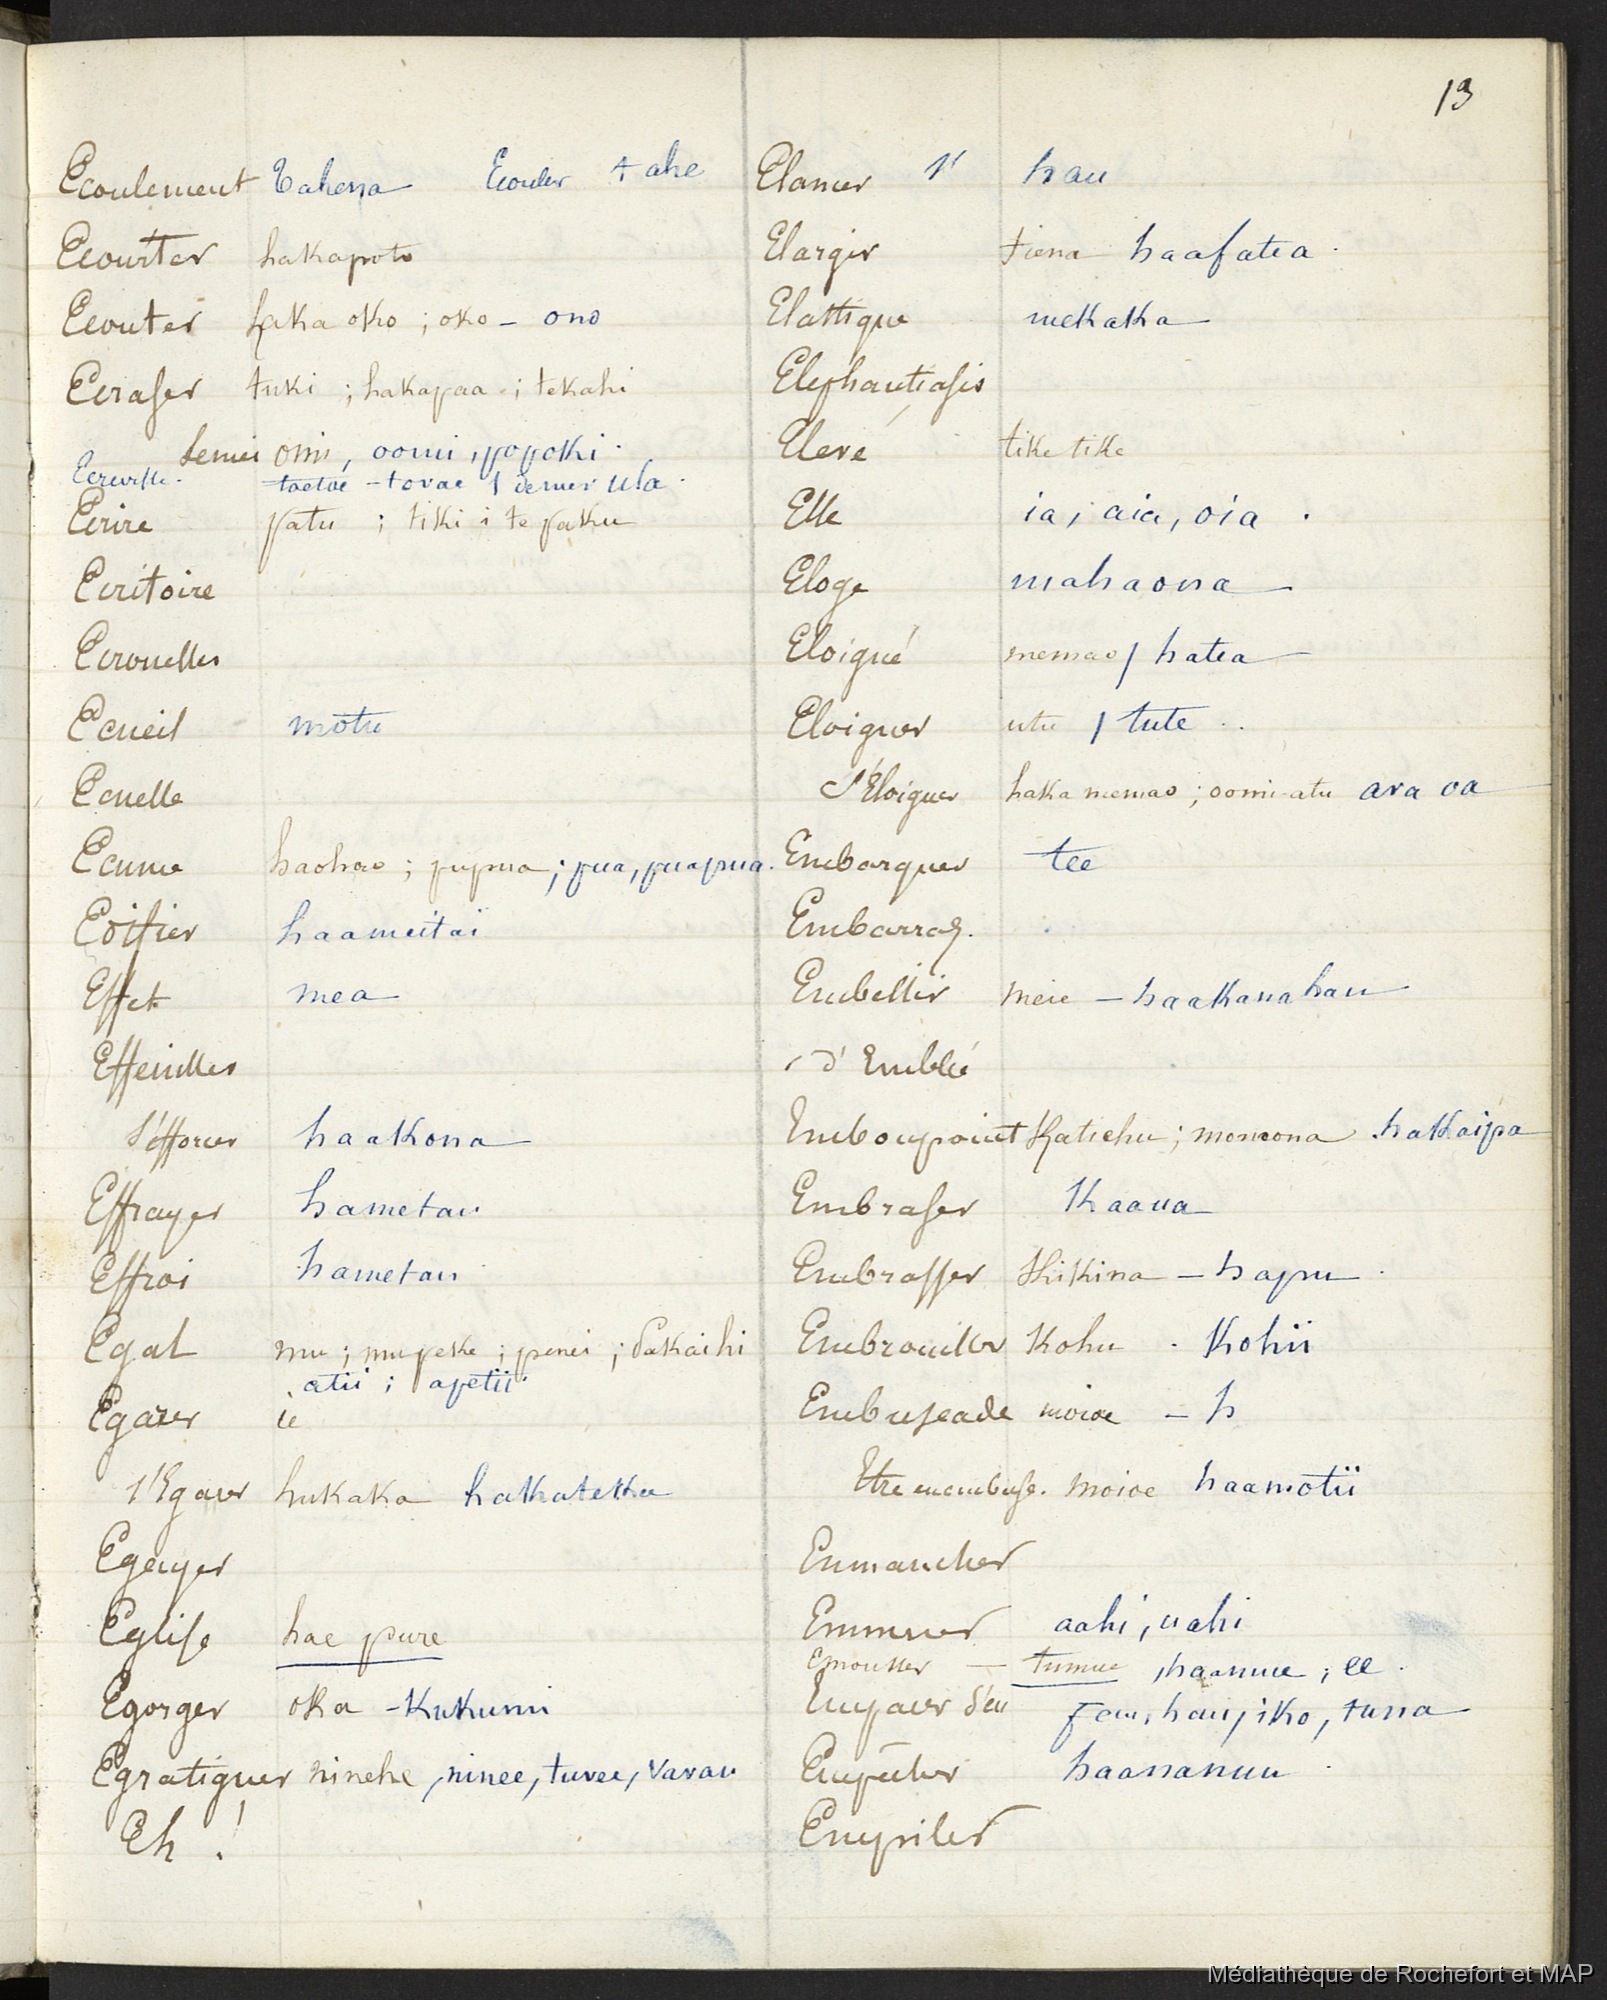 13
Ecoulement Tahena Ecouler tahe
Ecourter hakapoto
Ecouter haka oko ; oko - ono
Ecraser tuki ; hakapaa ; tekahi
omi, oomi, popoki.
Ecrevisse. taetae - tovae / de mer ula.
Ecrire patu ; tiki i te paku
Ecritoire
Ecrouelles
Ecueil motu
Ecuelle
Ecume haohao ; pupua ; pua, puapua.
Edifier haameitai
Effet mea
Effeuiller
s'éfforcer haakona
Effrayer hametau
Effroi hametau
Egal mu ; mupeke ; penei ; dakaihi
atii ; apetii.
Egarer ie
s'Egarer hukaka hakateka
Egayer
Eglise hae pure
Egorger oka - kukumi
Egratigner ninehe, ninee, tuvee, varau
Eh !
Elancer s' hau
Elargir tiena haafatea.
Elastique mekaka
Elephantiasis
Elevé tike tike
Elle ia ; aia, oia.
Eloge mahaona
Eloigné memao / hatea
Eloigner utu / tute..
s'Éloigner haka memao ; oomi atu ava oa
Embarquer tee
Embarras.
Embellir meie - haakanahau
d'Emblée
Embonpoint Katiehu ; momona hakaipa
Embraser Kaaua
Embrasser Hikina - hapu.
Embrouiller Kohu . Kohii
Embuscade moioe - h
Etre en embusc. moioe haamotii
Emmancher
Emmener aahi, uahi
Emousser - tumue, haamue ; ee.
Emparer s'en fau, hau, iko, tuna
Empêcher haananuu.
Empiler
Médiathèque de Rochefort et MAP